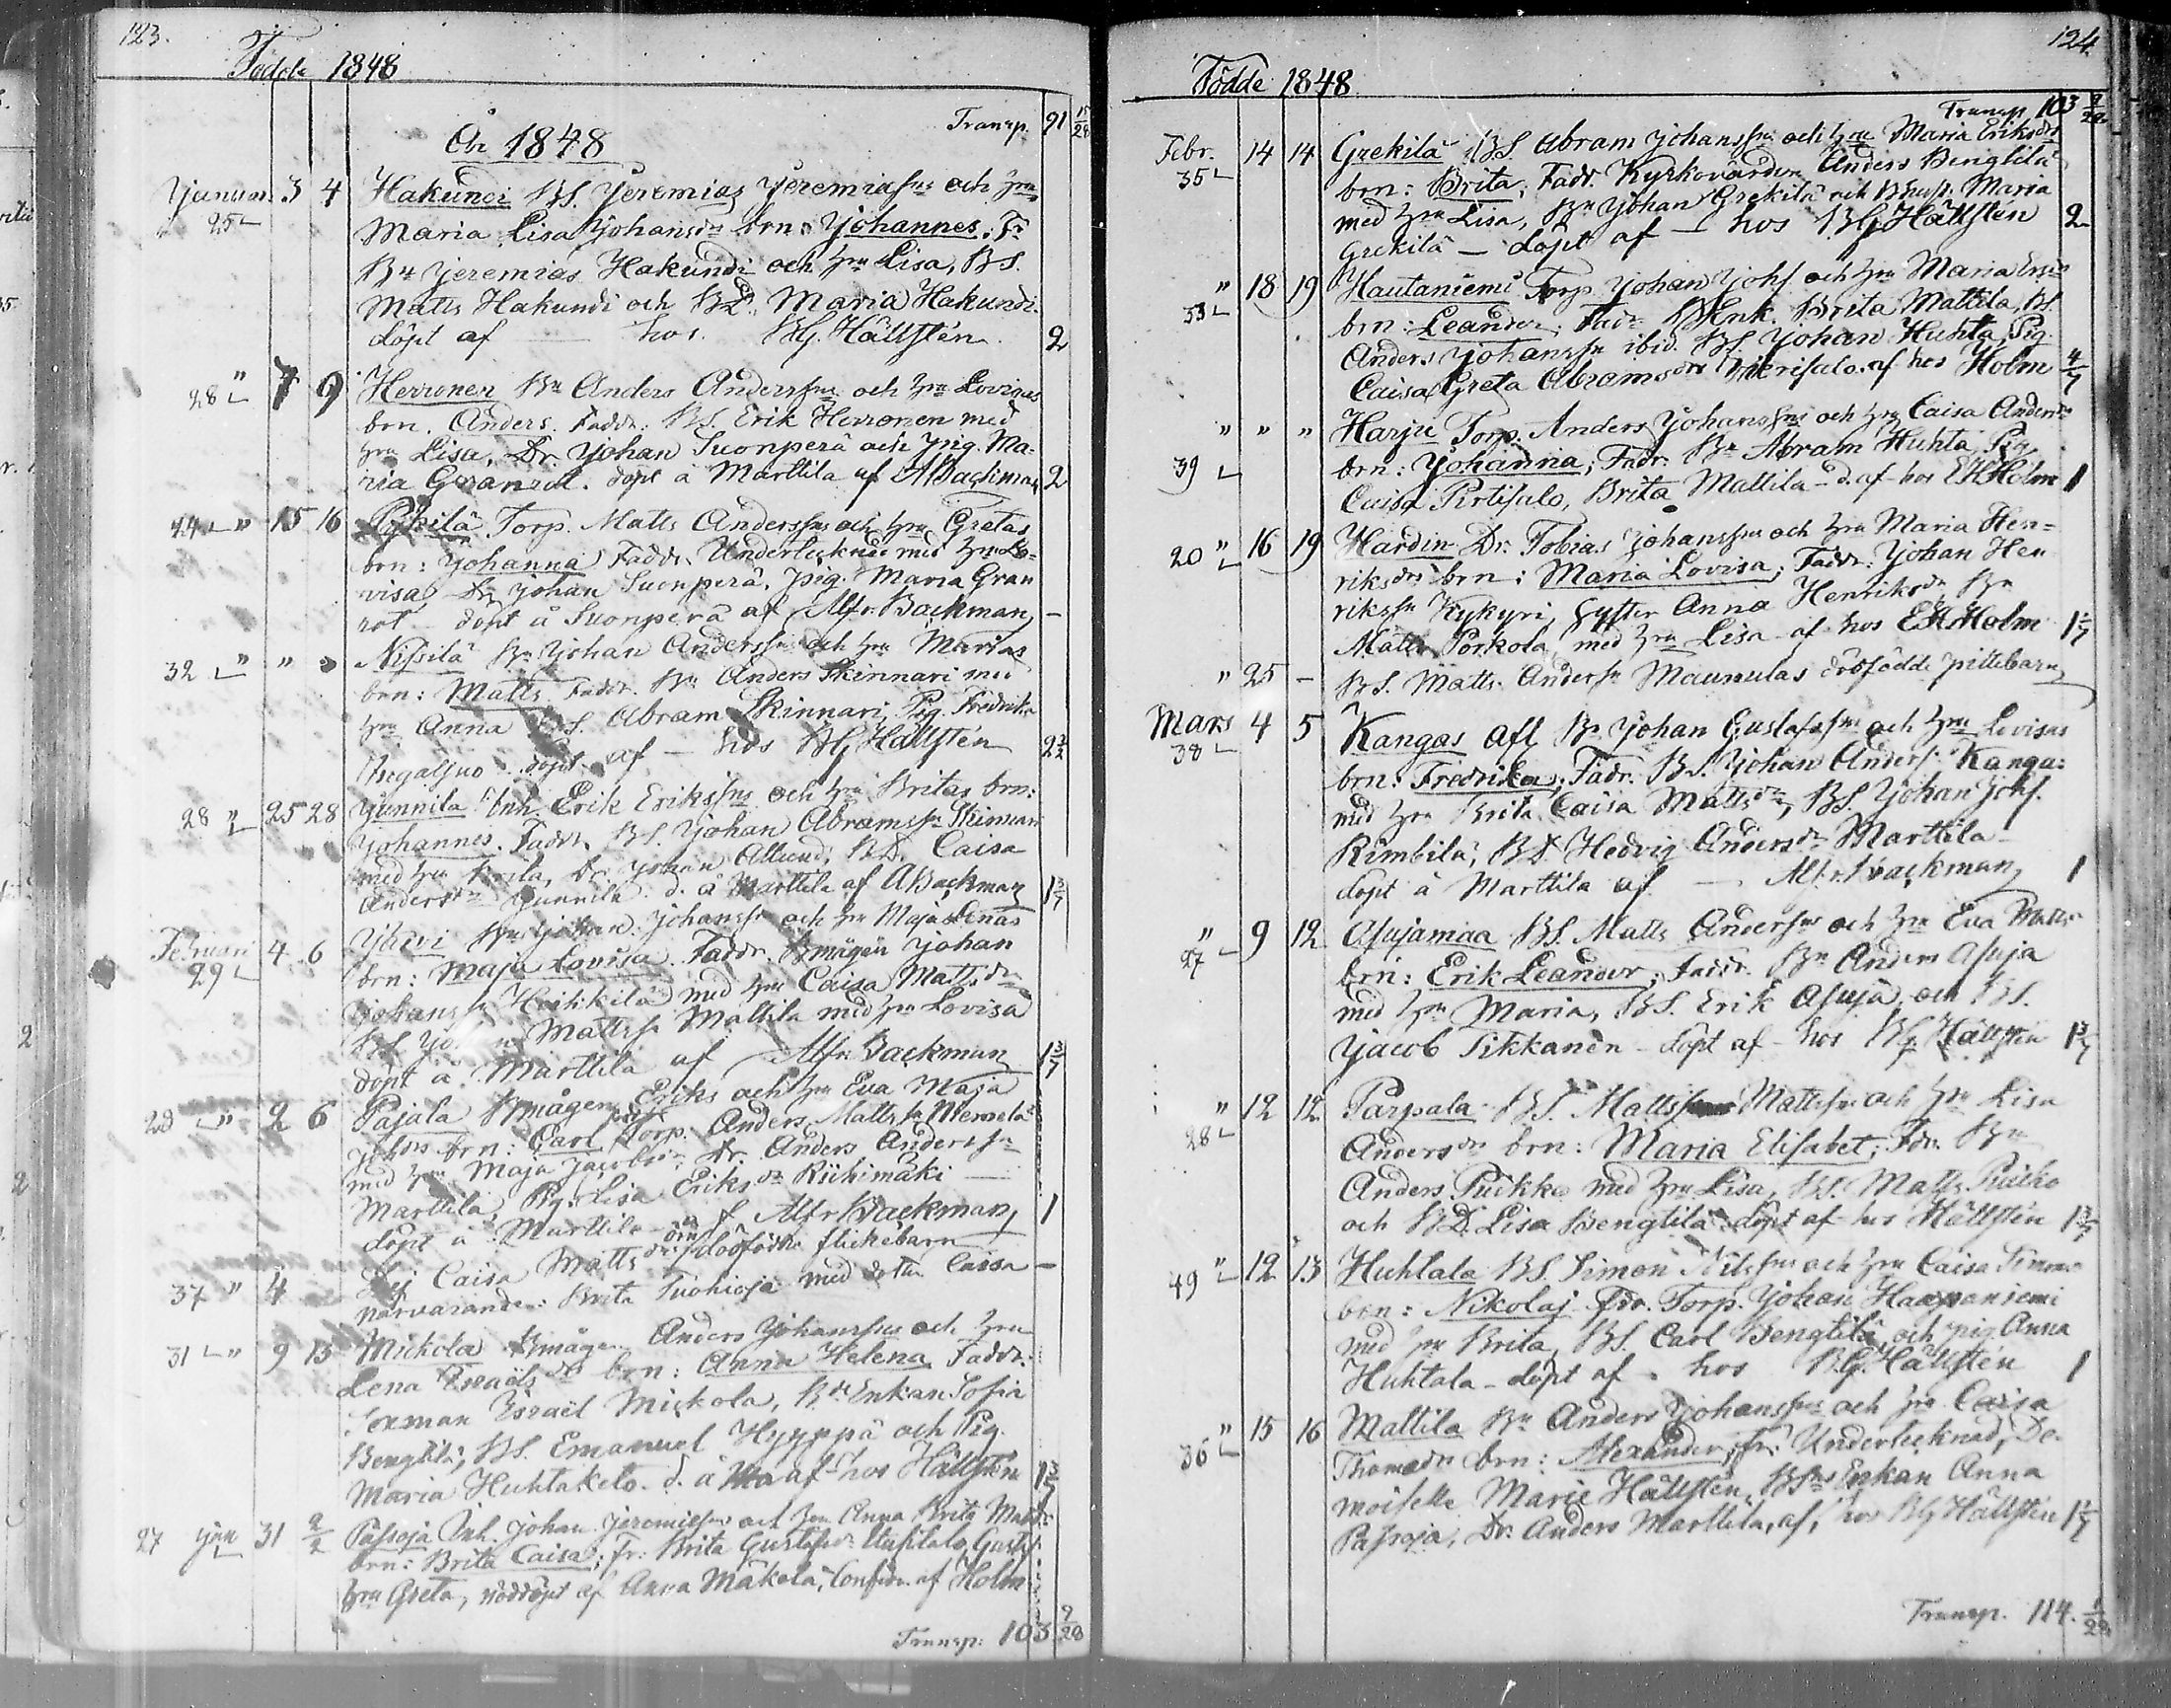 123.
Födde 1848
Transp. 91 15/28
År 1848
Januari 3 4 Hakunde BS. Jeremias Jeremiasns och hru
25 Maria Lisa Johansdrs brn: Johannes. Fr
Bn Jeremias Hakundi och hru Lisa, BS.
Matts Hakundi och BD. Maria Hakundi.
döpt af — hos. BG. Hällsten. 2
28 " 7 9 Herronen Bn Anders Anderssns och hru Lovisas
brn. Anders. Faddr: BS. Erik Herronen med
hru Lisa, Dr. Johan Suonperä och pig. Ma-
ria Granrot. döpt å Marttila af A Backman 2
44 " 15 16 Torp. Matts Anderssns och hru Gretas
brn: Johanna Faddr. Undertecknad med hru Lo-
visa, Dr Johan Suonperä, pig. Maria Gran
rot döpt å Suonperä af Alfr. Backman —
32 " " " Nissilä Bn Johan Anderssns och hru Marias
brn: Matts Faddr. Bn Anders Skinnari med
hru Anna BS. Abram Skinnari, Pig. Fredrika
döpt af — hos BG Hällsten 2
28 " 25 28 Junnila Inh. Erik Erikssns och hru Britas brn:
Johannes. Faddr. BS. Johan Abramssn Skinnari
med hru Brita, Dr. Johan BD. Caisa
Andersdr Junnila d. å Marttila af A Backman 1 3/7
Februari 4 6 Johan Johanssns och hru Maja Lenas
29 brn: Maja Lovisa. Faddr. Bmågen Johan
Johanssn Heikkilä med hru Caisa Mattsdr
BS. Johan Mattssn Mattila med hru Lovisa
döpt å Marttila af Alfr. Backman 1 3/7
" 2 6 Pajala Bmågen Eriks och hru Eva Maja
Johdrs brn: Carl Torp. Anders Mattssn Niemelä
med hru Maja Jacobsdr, Dr. Anders Anderssn
Marttila, Pig. Lisa Eriksdr Riihimäki —
döpt å Marttila af Alfr Backman 1
37 " 4 Caisa Mattsdrs dödfödda flickebarn
närvarande: Brita Tuohioja med dottr Caisa —
31 " 9 13 Mickola Bmågen Anders Johanssns och hru
Lena Israelsdrs brn: Anna Helena Faddr:
Sexman Israel Mickola, Bde Enkan Sofia
Bengtilä, BS. Emanuel Hyyppä och Pig.
Maria Huhtaketo. d. å af hos Hällsten 1 3/7
27 Jan 31 2/2 Passoja Inh. Johan Jeremiassns och hru Anna Brita
brn: Brita Caisa; fr: Brita Gustafsdr
hru Greta, nöddöpt af Anna Mäkelä, Confirm. af Holm
Transp: 103 9/28
124
Födde 1848
Transp 103 9/28
Febr. 14 14 Grekilä BS. Abram Johanssns och hru Maria Eriksdrs
35 brn: Brita; Fadr. Kyrkovärden Anders Bengtilä
med hru Lisa, Bn Johan Grekilä och Maria
Grekilä — döpt af — hos BG Hällsten 2
" 18 19 Hautaniemi Torp. Johan Johs och hru Maria
33 brn: Leander; Fadr BEnk Brita Mattila, BS.
Anders Johanssn ibid. BS Johan Huhta, Pig
Caisa Greta Abramsdr af hos Holm 4/7
" " " Harju Torp. Anders Johanssns och hru Caisa Andersdrs
39 brn: Johanna; Fadr. Bn Abram Huhta, Pig
Caisa Pirtisalo, Brita Mattila - d. af - hos EH Holm 1
20 " 16 19 Hardin Dr. Tobias Johanssns och hru Maria Hen-
riksdrs brn: Maria Lovisa; Faddr: Johan Hen
rikssn Kykyri, Syster Anna Henriksdr, Bn
Matts Porkola, med hru Lisa - af hos EH Holm 1
" 25 - BS. Matts Anderssn Maunulas dödfödde piltebarn
Mars 4 5 Kangas Afl. Bn Johan Gustafssns och hru Lovisas
38 brn: Fredrika; Fadr. BS. Johan Anders. Kangas
med hru Brita Caisa Mattsdr, BS. Johan Johs.
Rimbilä, BD Hedvig Andersdr Marttila -
döpt å Marttila af — Alfr. Backman 1
" 9 12 Asujamaa BS. Matts Anderssns och hru Eva Matts
27 brn: Erik Leander; Fadr. Bn Anders Asuja
med hru Maria, BS. Erik Asuja, och BS.
Jacob Tikkanen - döpt af - hos BG Hällsten 1 3/7
" 12 12 Parpala BS. Matts Mattssns och hru Lisa
28 Andersdrs brn: Maria Elisabet; Fdr. Bn
Anders Puikko med hru Lisa, BS. Matts Puikko
och BD. Lisa Bengtilä döpt af - hos Hällsten 1 3/7
49 " 12 13 Huhtala BS. Simon Nilssns och hru Caisa Simons
brn: Nikolaj fdr. Torp. Johan Haapaniemi
med hru Brita, BS. Carl Bengtilä, och pig. Anna
Huhtala - döpt af - hos BG. Hällsten 1
" 15 16 Mattila Bn Anders Johanssns och hru Caisa
36 Thomadrs brn: Alexander; fr: Undertecknad, De-
moiselle Marie Hällsten, Enkan Anna
Passoja, Dr. Anders Marttila, af, hos BG Hällsten
Transp. 114. 1/28